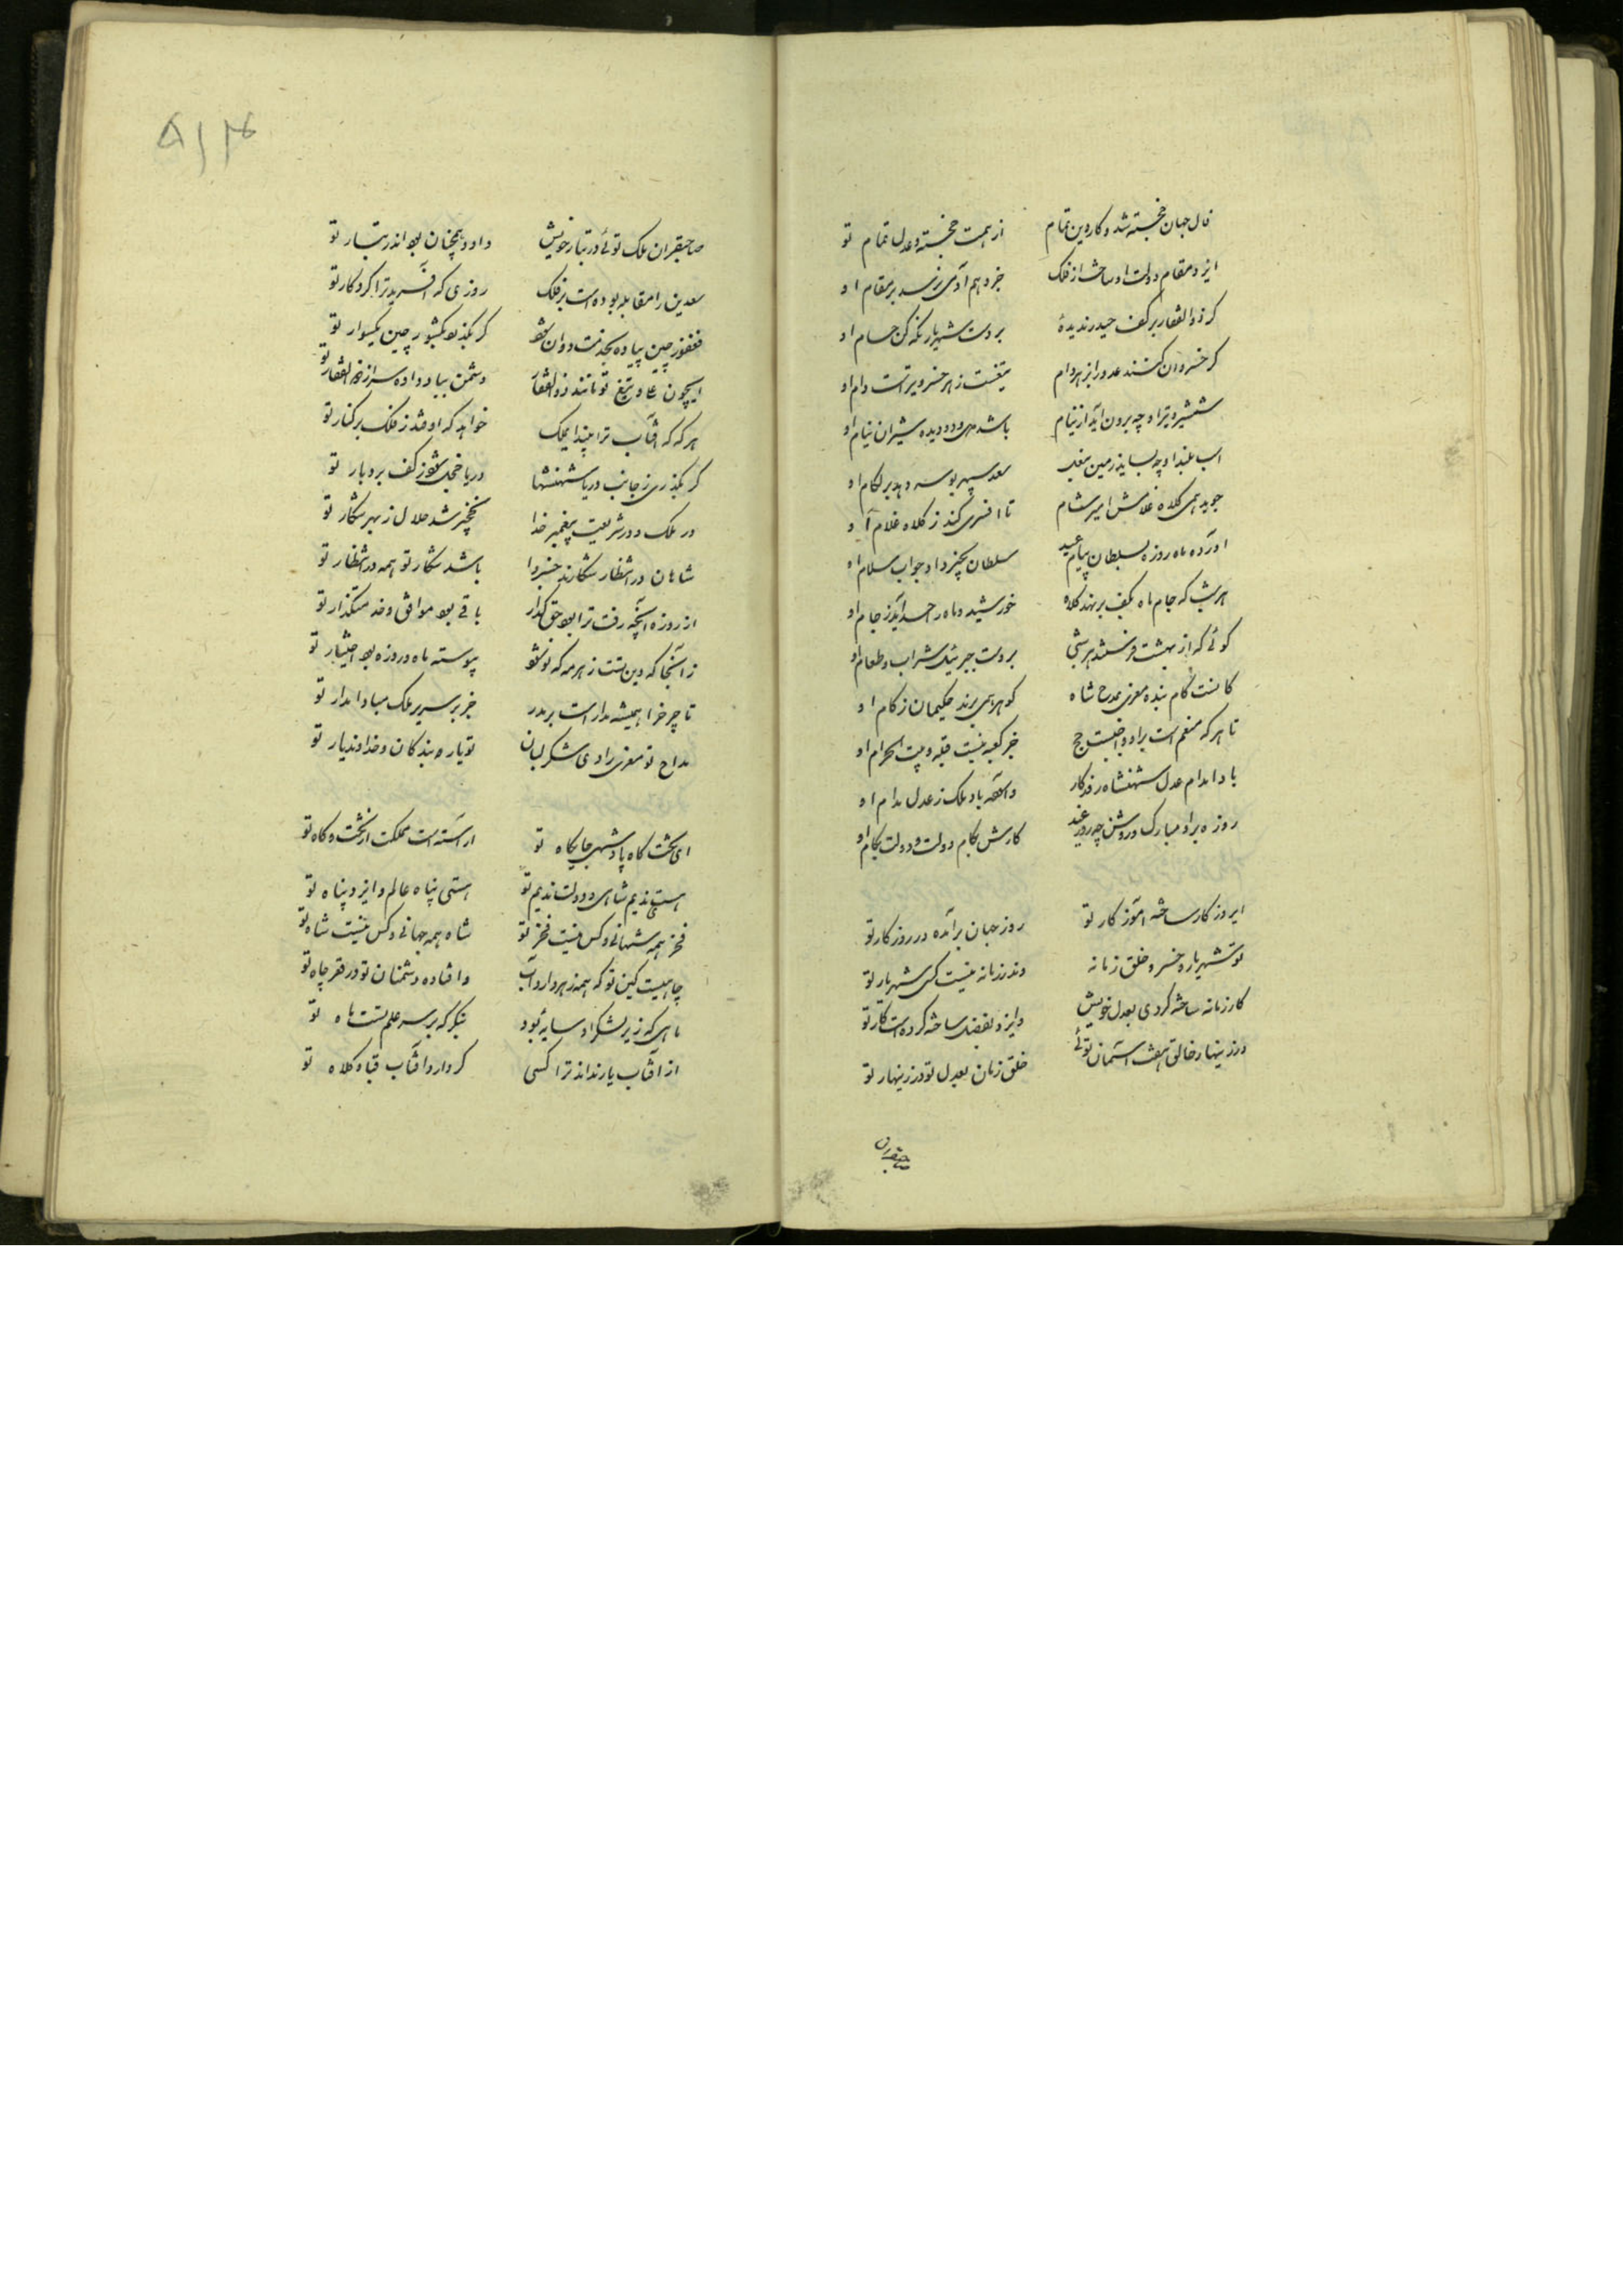 فال جهان خجسته شد و کار دین تمام از همت خجسته و عدل تمام تو
ایزد مقام دولت او ساخت از فلک جز وهم آدمی نرسد بر مقام او
گر ذوالفقار بر کف حیدر ندیدهٔ بر دست شهریار نگه کن حسام او
گر خسروان کشند عدو را ز بهر دام تیغست ز هر خسرو و تیرست دام او
شمشیر و تیر او چو برون آید از نیام باشد دو دیده شیران نیام او
اسب بلند او چو بساید زمین بنعل سعد سپهر بوسه دهد بر لگام او
جوید همی کلاه غلامش امیر شام تا افسری کند ز کلاه غلام او
آورده ماه روزه بسلطان پیام عید سلطان بخیر داد جواب سلام او
هر شب که جام ماه بکف بر نهد کلاه خورشید و ماه را حسد آید ز جام او
گوئی که از بهشت فرستند هر شبی بر دست جبرئیل شراب و طعام او
کانست کام بنده معزی بمدح شاه گوهر همی برند حکیمان ز کام او
تا هر که منعم است برو واجبست حج جز کعبه نیست قبله و بیت الحرام او
بادا مدام عدل شهنشاه روزگار وآسوده باد ملک ز عدل مدام او
روزه برو مبارک و روشن چو روز عید کارش بکام دولت و دولت بکام او
ای روزگار ساخته آموزگار تو روز جهان برآمده در روزگار تو
تو شهریار و خسرو خلق زمانه وندر زمانه نیست کسی شهریار تو
کار زمانه ساخته کردی بعدل خویش وایزد بفضل ساخته کرده است کار تو
در زینهار خالق هفت آسمان توئی خلق زمان بعدل تو در زینهار تو
صاحبقران
۵۱۴
صاحبقران ملک توئی در تبار خویش داود همچنان بود اندر تبار تو
سعدین را مقابله بوده است بر فلک روزی که آفرید ترا کردگار تو
فغفور چین پیاده بخدمت دوان شود گر بگذرد بکشور چین یکسوار تو
دشمن بباد داده سر از ذوالفقار تو
هر که که آفتاب ترا بیند ای ملک خواهد که اوفتد ز فلک بر کنار تو
گر بگذری ز جانب دریا شهنشها دریا خجل شود ز کف بردبار تو
در ملک و در شریعت پیغمبر خدا نخجیر شد حلال ز بهر شکار تو
شاهان در انتظار شکارند خسروا باشد شکار تو همه در انتظار تو
از روزه آنچه رفت ترا بود حق گذار باقی بود موافق و خدمتگذار تو
زآنجا که دین تست ز هر مه که نو شود پیوسته ماه روزه بود اختیار تو
تا چرخ را همیشه مدار است بر مدر جز بر سریر ملک مبادا مدار تو
مداح تو معزی راوی شکر لبان تو یار بندگان و خداوند یار تو
ای تخت گاه پادشهی جایگاه تو آراسته است مملکت از تخت و گاه تو
هستی ندیم شاهی و دولت ندیم تو هستی پناه عالم و ایزد پناه تو
فخر همه شهانی و کس نیست فخر تو شاه همه جهانی و کس نیست شاه تو
چاهیست کین تو که همه زهر دارد آب وافتاده دشمنان تو در قعر چاه تو
ماهی که زیر لشکر او سایهٔ بود بنگر که بر سر علم تست ماه تو
از آفتاب باز نداند ترا کسی گر دارد آفتاب قبا و کلاه تو